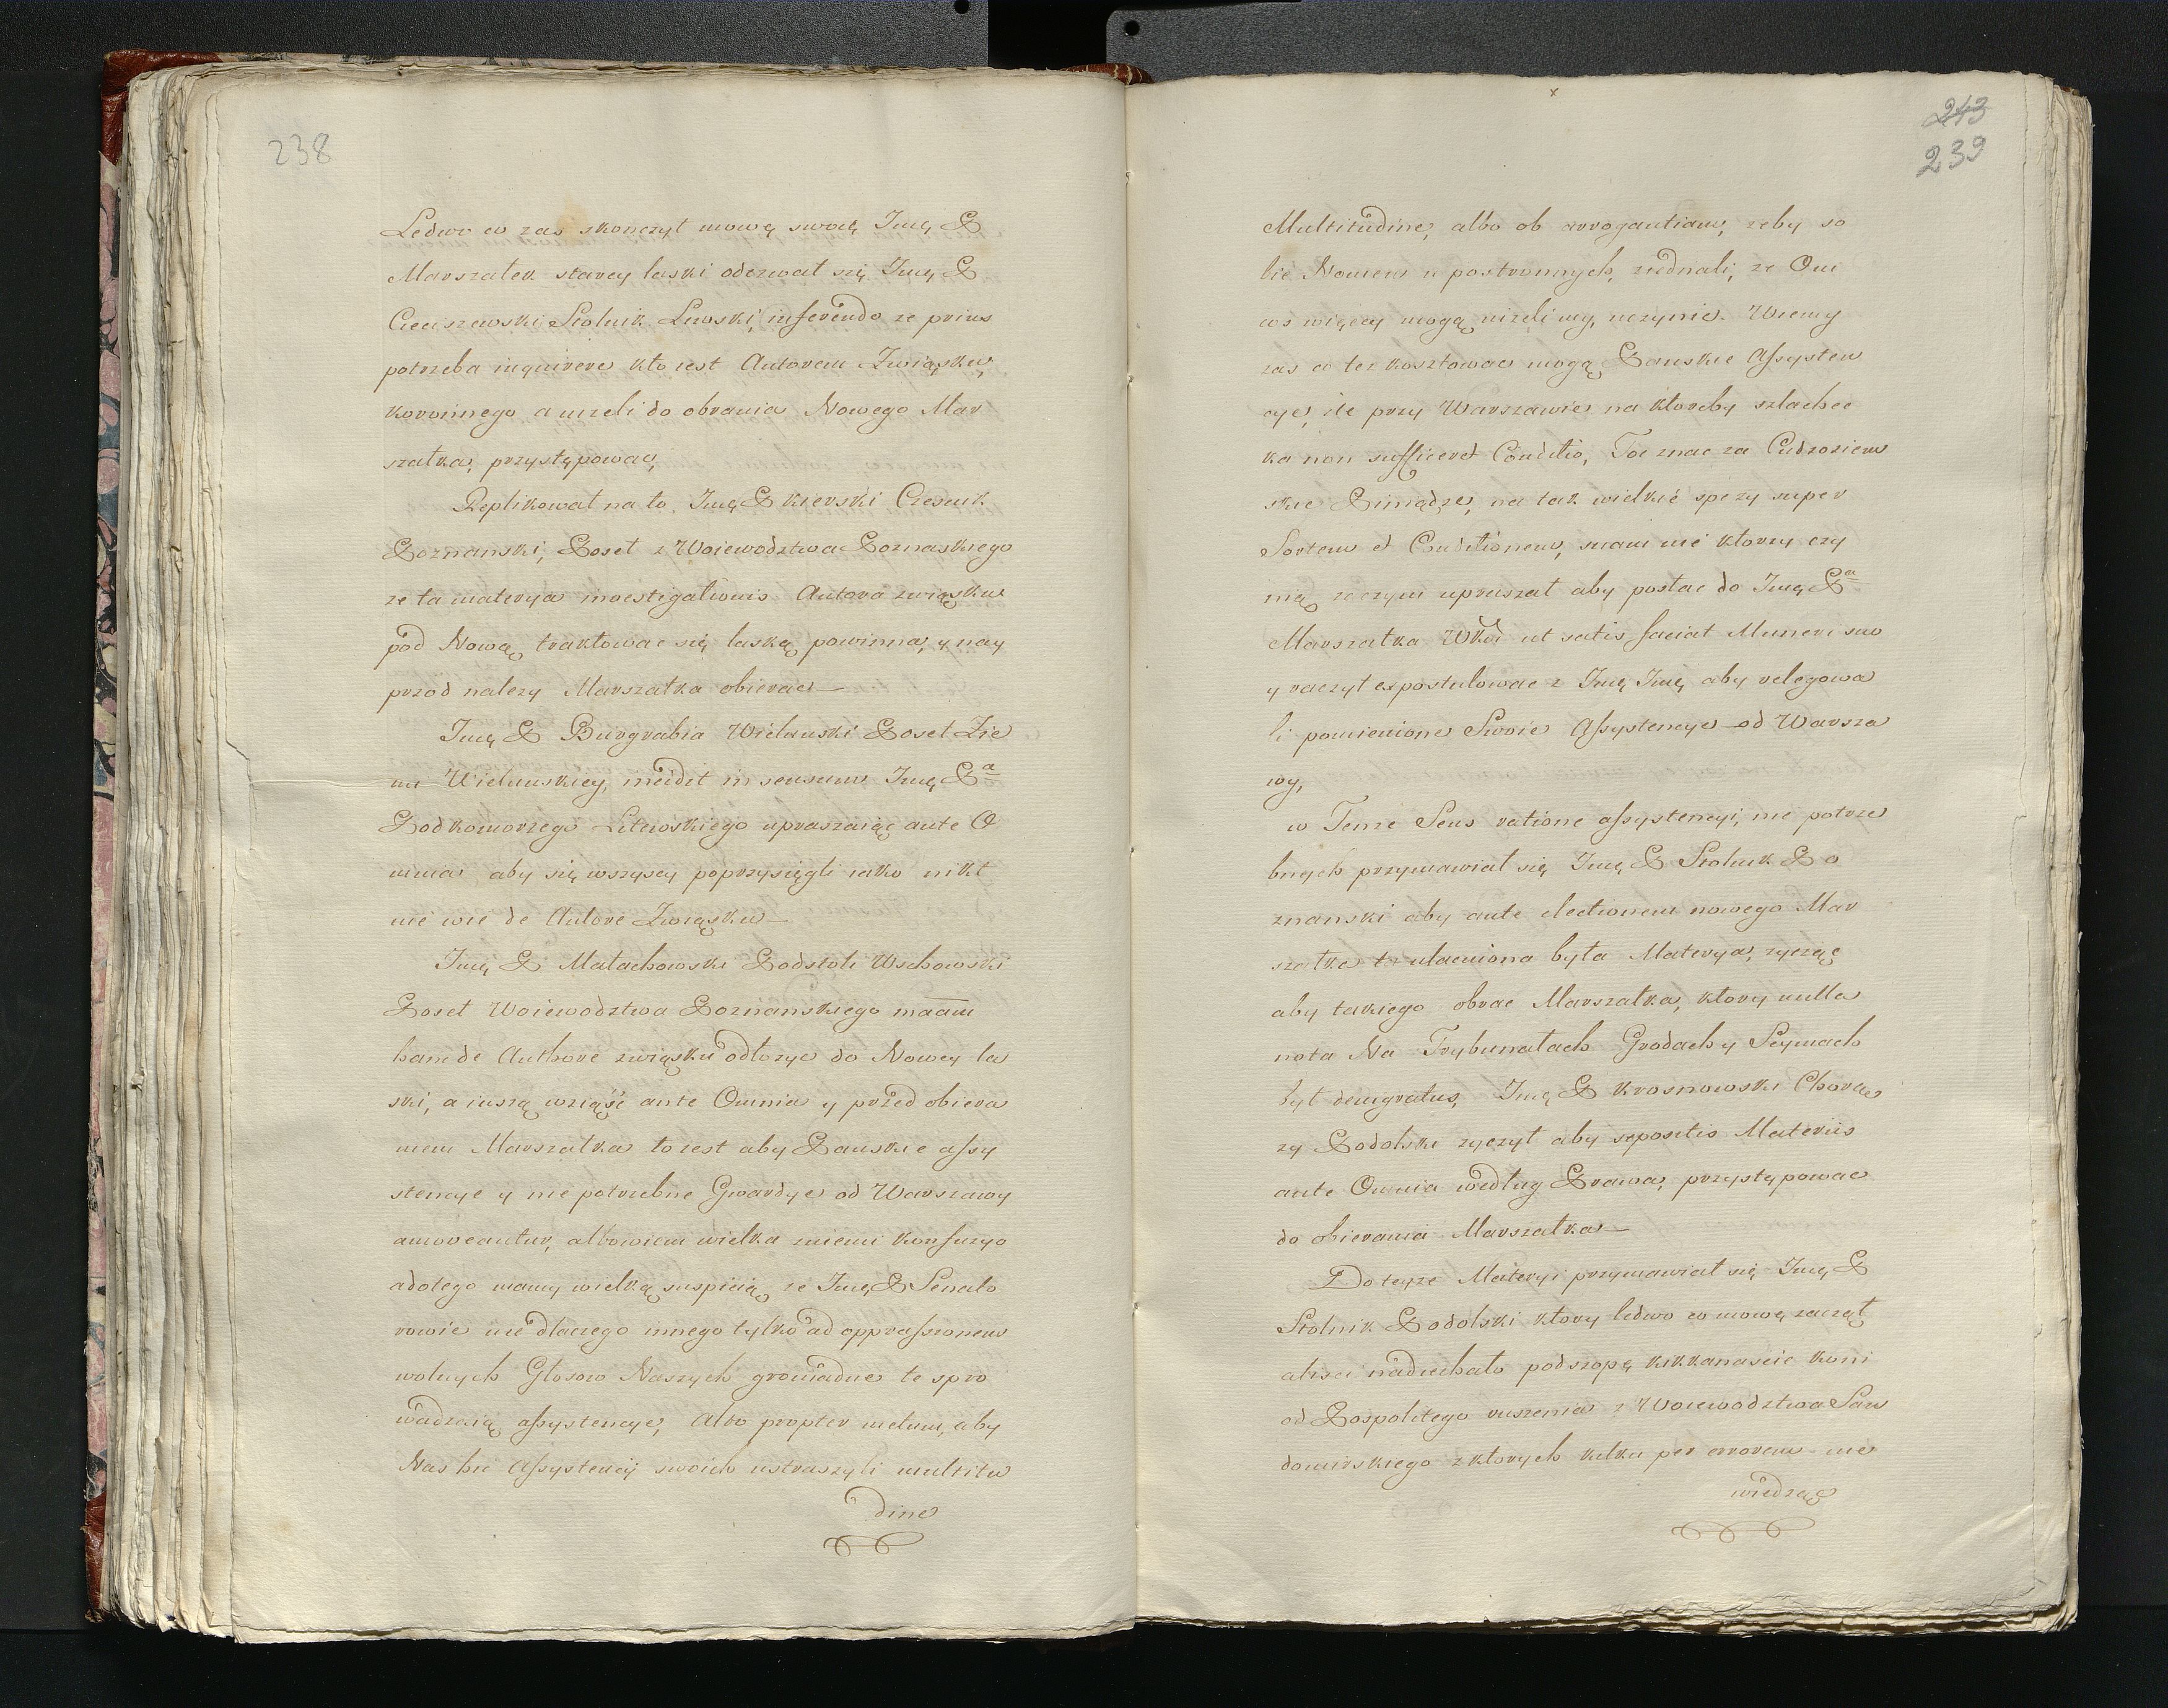 238
Ledwo co zas skonczył mowę swoię Jmę P
Marszałek starey laski odezwał się Jmę P
Cieciszewski Stolnik Liwski, inferendo ze prius
potrzeba inquirere kto iest Autorem Zwiąsku,
koronnego a nizeli do obrania Nowego Mar
szałka, przystępować,
Replikował na to, Jmę P Kierski Czesnik
Poznanski, Poseł z Woiewodztwa Poznaskiego
ze ta materya investigationis Autora zwiąsku
pod Nową traktowac się laską powinna, y nay
przod nalezy Marszałka obierac
Jmę P Burgrabia Wielunski Poseł Zie
mi Wielunskiey, incidit in sensum Jmę Pa
Podkomorzego Litewskiego upraszaiąc ante O
mnia, aby się wszyscy poprzysięgli iako nikt
nie wie de Autore Zwiąsku
Jmę P Małachowski Podstoli Wschowski
Poseł Woiewodztwa Poznanskiego maām
hanc de Authore zwiąsku odłozyc do Nowey la
ski, a inszą wziąść ante Omnia y przed obiera
niem Marszałka to iest aby Panskie assy
stencye y nie potrzebne Gwardye od Warszawy
amoveantur, albowiem wielka zniemi konfuzyo
adotego mamy wielką suspicią ze Jmę P Senato
rowie nie dlaczego innego tylko ad oppressionem
wolnych Głosow Naszych gromadne te spro
wadzaią assystencye, Albo propter metum, aby
Nas hic Assystencij swoich ustraszyli multitu
dine
243
239
Multitudine, albo ob arrogantiam, zeby so
bie Nomen u postronnych, ziednali, ze Oni
cos więcey mogą nizeli my, uczynic. Wiemy
zas co tez kosztowac mogą Panskie Assysten
cye, ile przy Warszawie, na ktoreby szlachec
ka non sufficeret Conditio, Toc znac za Cudzoziem
skie Piniądze, na tak wielkie spezy super
Sortem et Conditionem, suam nie ktorzy czy
nią zaczym upraszał aby posłac do Jmę Pa
Marszałka WKo ut satis faciat Muneri suo
y raczył expostulowac z Jmę Jmę aby relegowa
li pomienione Swoie Assystencye od Warsza
wy,
w Temze Sens ratione assystencyi, nie potrze
bnych przymawiał się Jmę P Stolnik Po
znanski aby ante electionem nowego Mar
szałka ta ułacniona była Materya, zycząc
aby takiego obrac Marszałka, ktory nulla
nota Na Trybunałach Grodach y Seymach
był denigratus, Jmę P Krosnowski Chorą
zy Podolski zyczył aby sepositis Materiis
ante Omnia według Prawa, przystępowac
do obierania Marszałka
Do teyze Materyi przymawiał się Jmę P
Stolnik Podolski ktory ledwo co mowę zaczął
alisci nadiechało podszopę kikkanascie koni
od Pospolitego ruszenia z Woiewodztwa San
domirskiego z ktorych kilku per errorem nie
wiedząc